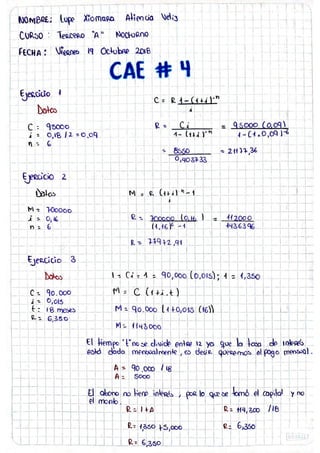 NOMBRE: Lupe Xiomara Atiencia Veliz
CURSO: TERCERO "A" NOCTURNO
FECHA: Viernes 19 Octubre 2018
CAE # 4
Ejercicio 1
Datos
C = R 1-(1+i)^-n / i
C: 95000
i = 0,18/2 = 0,09
n = 6
R = C i / 1-(1+i)^-n = 95000 (0,09) / 1-(1+0,09)^-6
= 8550 / 0,403733 = 21177,36
Ejercicio 2
Datos
M = R (1+i)^n -1 / i
M = 700000
i = 0,16
n = 6
R = 700000 (0,16) / (1,16)^6 -1 = 112000 / 1436396
R = 77972,91
Ejercicio 3
Datos
I = C i = 1 = 90,000 (0,015); 1 = 1,350
C = 90.000
i = 0,015
t: 18 meses
R = 6,350
M = C (1+i.t)
M = 90.000 (1+0,015 (18))
M = 114300
El tiempo "t" no se divide entre 12 ya que la tasa de interés
está dado mensualmente, es decir queremos el pago mensual.
A = 90,000 /18
A = 5000
El abono no tiene interés, por lo que se tomó el capital y no
el monto.
R = I+A
R = 114,300 /18
R = 1350 + 5,000
R = 6,350
R = 6,350